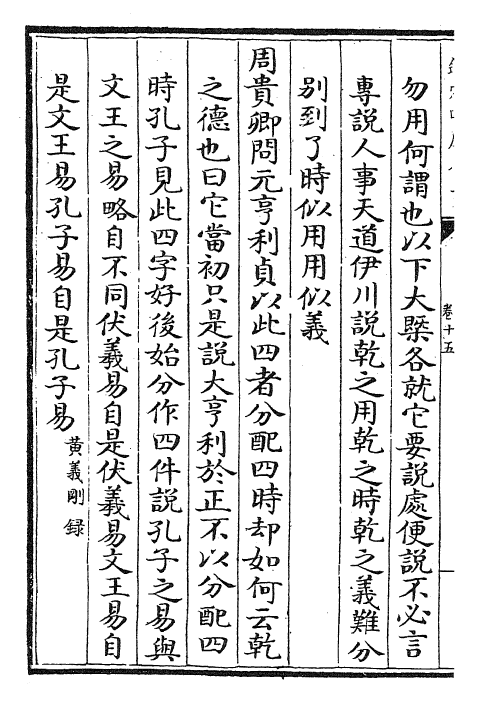 卷十五
勿用何謂也以下大槩各就它要說處便說不必言
專說人事天道伊川說乾之用乾之時乾之義難分
别到了時似用用似義
周貴卿問元亨利貞以此四者分配四時却如何云乾
之德也曰它當初只是說大亨利於正不以分配四
時孔子見此四字好後始分作四件說孔子之易與
文王之易略自不同伏羲易自是伏羲易文王易自
是文王易孔子易自是孔子易黄義剛錄